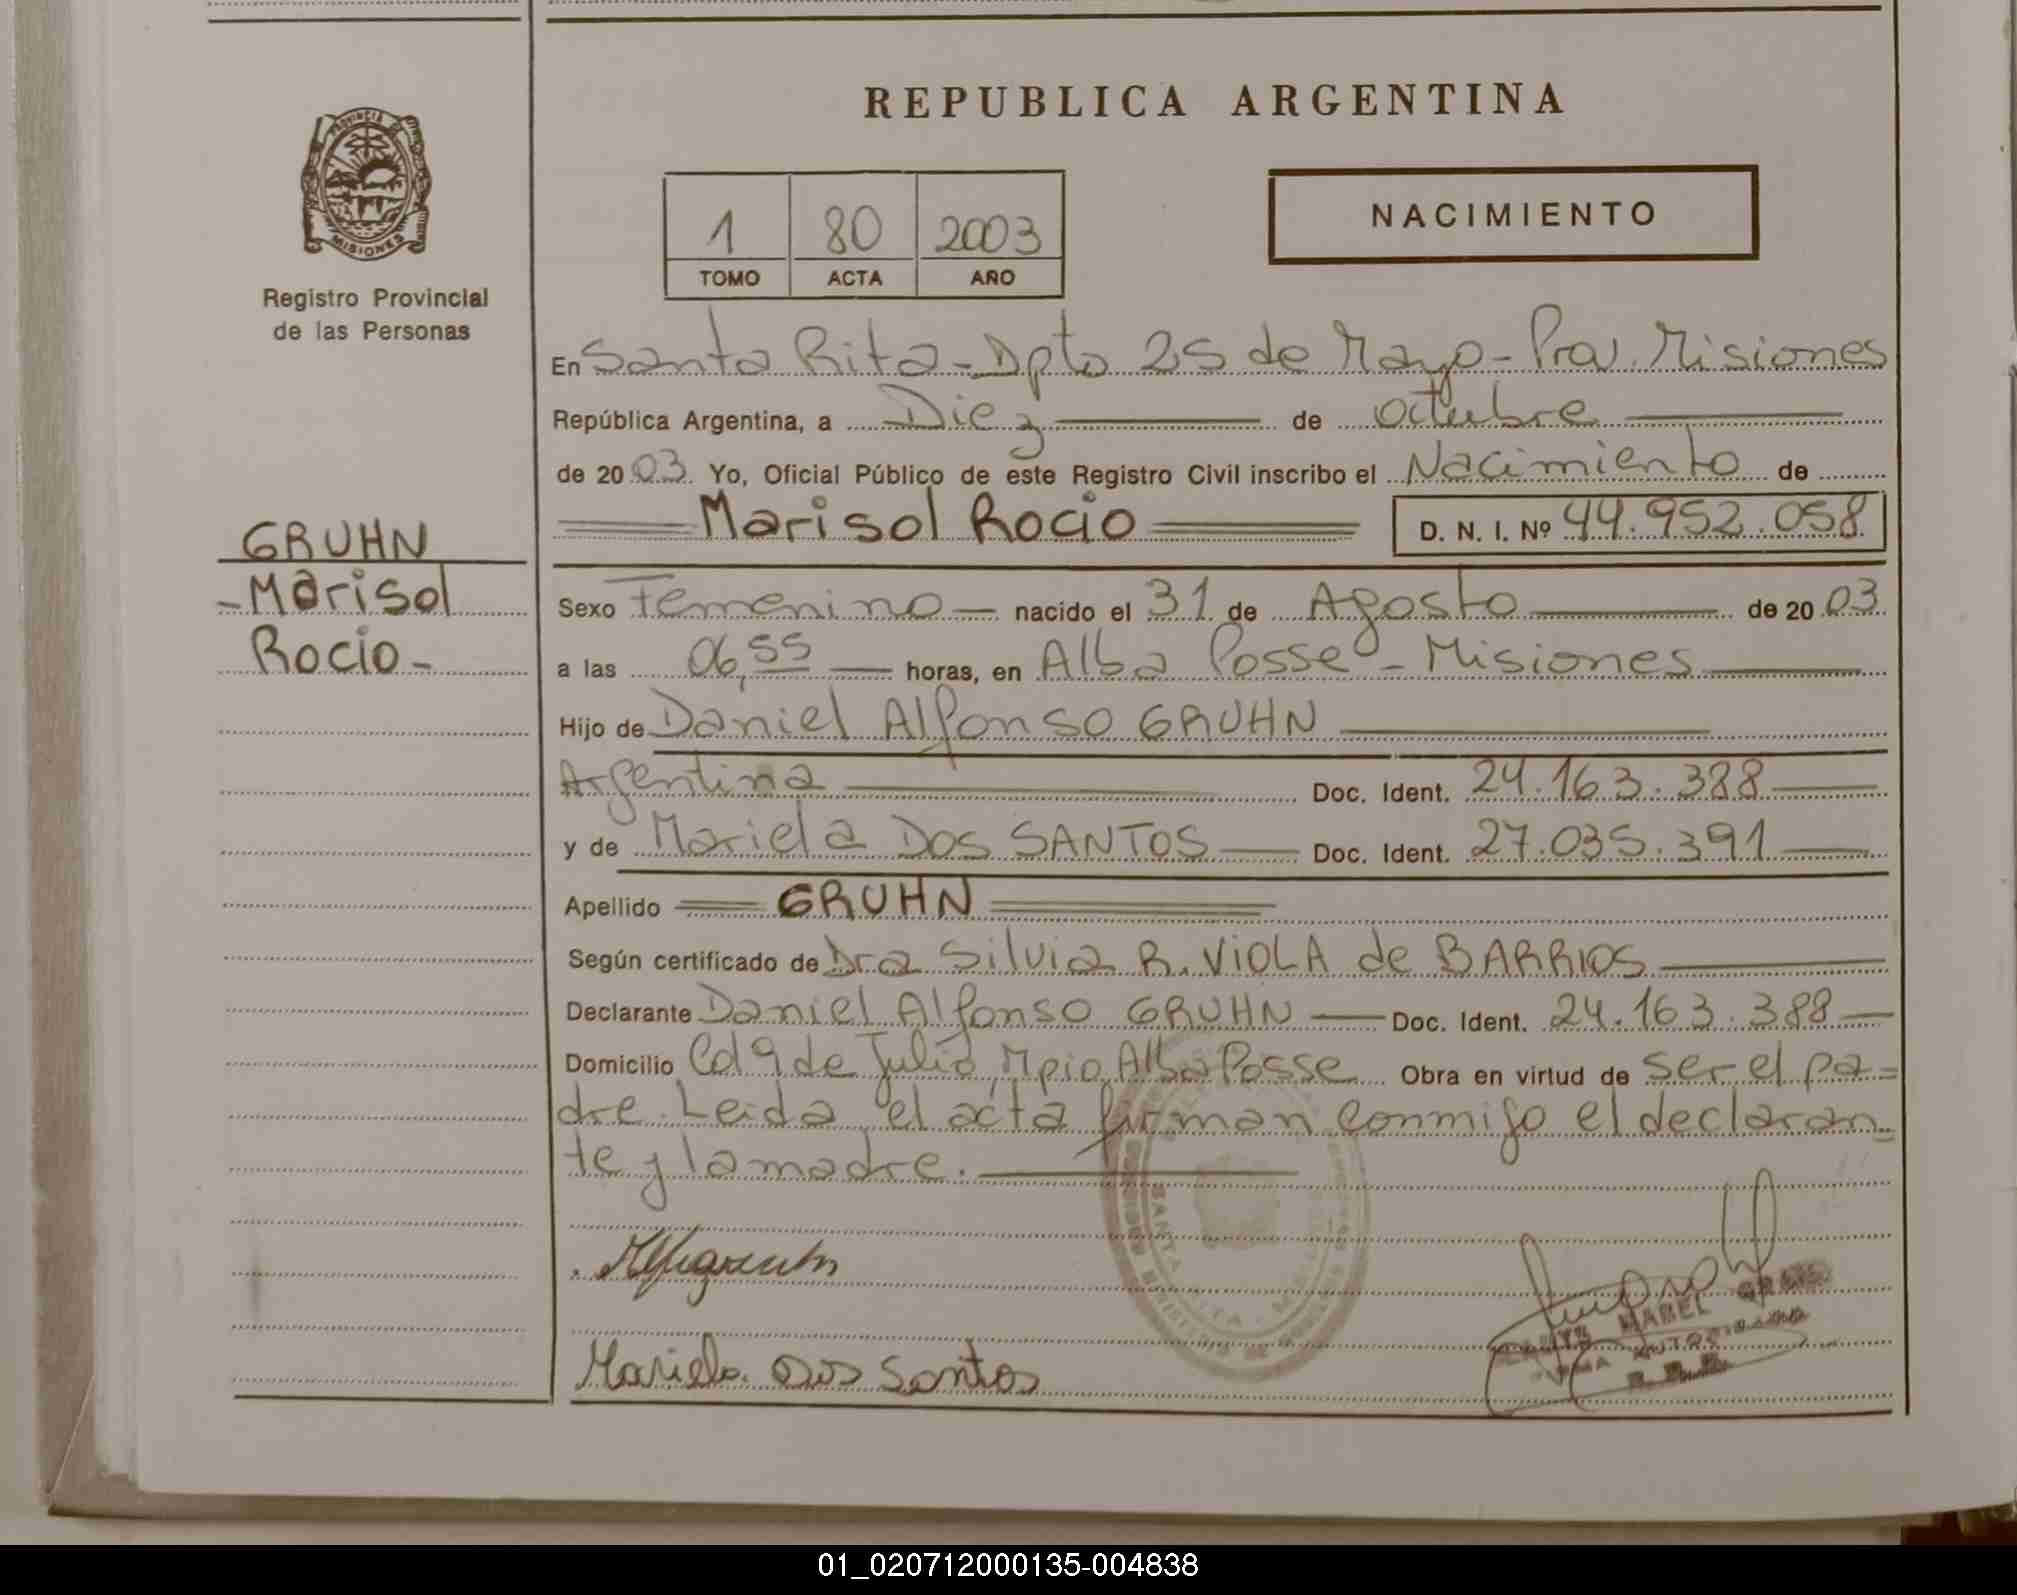 REPUBLICA ARGENTINA
PROVINCIA DE
MISIONES
Registro Provincial
de las Personas
1 80 2003
TOMO ACTA AÑO
NACIMIENTO
En Santa Rita - Dpto 25 de Mayo - Prov. Misiones
República Argentina, a Diez de octubre
de 2003 Yo, Oficial Público de este Registro Civil inscribo el Nacimiento de
Marisol Rocio D. N. I. Nº 44.952.058
GRUHN
- Marisol
Rocio -
Sexo Femenino nacido el 31 de Agosto de 2003
a las 06,55 horas, en Alba Posse - Misiones
Hijo de Daniel Alfonso GRUHN
Argentina Doc. Ident. 24.163.388
y de Mariela DOS SANTOS Doc. Ident. 27.035.391
Apellido GRUHN
Según certificado de Dra Silvia R. VIOLA de BARRIOS
Declarante Daniel Alfonso GRUHN Doc. Ident. 24.163.388
Domicilio Col 9 de Julio, Mpio, Alba Posse Obra en virtud de ser el pa=
dre. Leida el acta firman conmigo el declaran=
te y la madre.
SANTA RITA
Mariela Dos Santos
MABEL
01_020712000135-004838